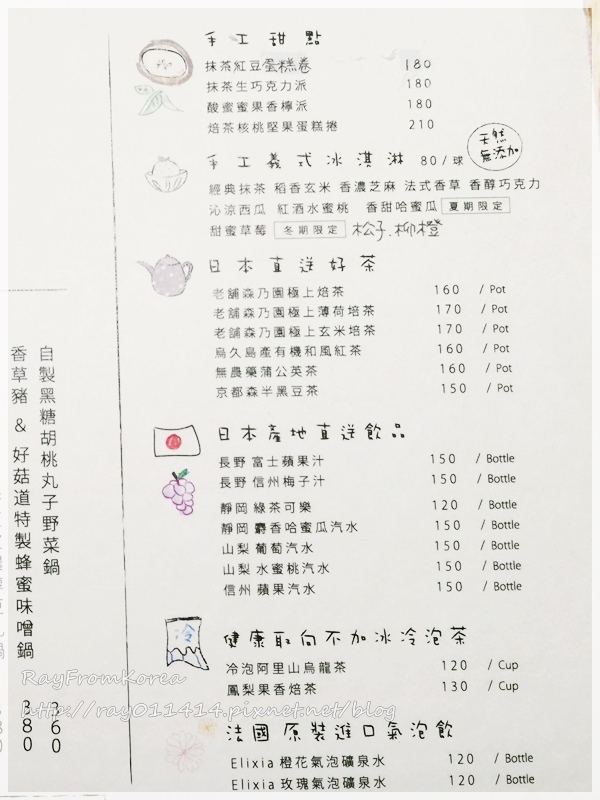 手工甜點
抹茶紅豆蛋糕卷 180
抹茶生巧克力派 180
酸蜜蜜果香檸派 180
焙茶核桃堅果蛋糕捲 210
手工義式冰淇淋 80/球
天然無添加
經典抹茶 稻香玄米 香濃芝麻 法式香草 香醇巧克力
沁涼西瓜 紅酒水蜜桃 香甜哈蜜瓜 夏期限定
甜蜜草莓 冬期限定 松子.柳橙
日本直送好茶
老舖森乃園極上焙茶 160 / Pot
老舖森乃園極上薄荷焙茶 170 / Pot
老舖森乃園極上玄米焙茶 170 / Pot
鳥久島產有機和風紅茶 160 / Pot
無農藥蒲公英茶 160 / Pot
京都森半黑豆茶 150 / Pot
日本產地直送飲品
長野 富士蘋果汁 150 / Bottle
長野 信州梅子汁 150 / Bottle
靜岡 綠茶可樂 120 / Bottle
靜岡 麝香哈蜜瓜汽水 150 / Bottle
山梨 葡萄汽水 150 / Bottle
山梨 水蜜桃汽水 150 / Bottle
信州 蘋果汽水 150 / Bottle
冷
健康取向不加冰冷泡茶
冷泡阿里山烏龍茶 120 / Cup
鳳梨果香焙茶 130 / Cup
法國原裝進口氣泡飲
Elixia 橙花氣泡礦泉水 120 / Bottle
Elixia 玫瑰氣泡礦泉水 120 / Bottle
自製黑糖胡桃丸子野菜鍋 360
香草豬 & 好菇道特製蜂蜜味噌鍋 380
RayFromKorea
http://ray011414.pixnet.net/blog